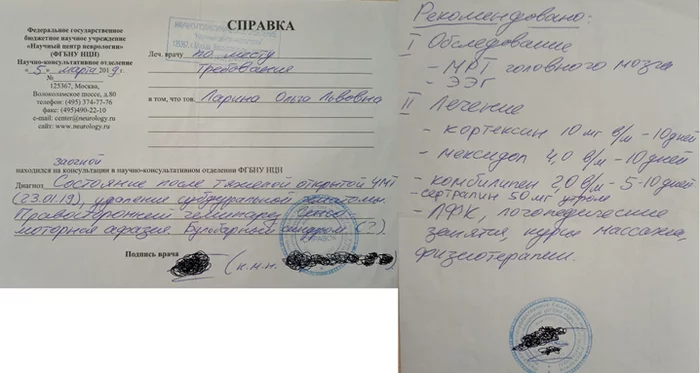 Федеральное государственное
бюджетное научное учреждение
«Научный центр неврологии»
(ФГБНУ НЦН)
Научно-консультативное отделение
« 5 » марта 2019 г.
№
125367, Москва,
Волоколамское шоссе, д.80
телефон: (495) 374-77-76
факс: (495)490-22-10
e-mail: center@neurology.ru
сайт: www.neurology.ru
СПРАВКА
Леч. врачу по месту
Требования
в том, что тов. Ларина Ольга Львовна
заочной
находился на консультации в научно-консультативном отделении ФГБНУ НЦН
Диагноз Состояние после тяжелой открытой ЧМТ
(23.01.19), удаления субдуральной гематомы.
Правосторонний гемипарез.
моторная афазия. Бульбарный синдром (?).
Подпись врача
(к.м.н.
Рекомендовано:
I Обследование
- МРТ головного мозга
- ЭЭГ
II Лечение
- кортексин 10 мг в/м - 10 дней
- мексидол 4,0 в/м - 10 дней
- комбилипен 2,0 в/м - 5-10 дней
- сертралин 50 мг утром
- ЛФК, логопедические
занятия, курсы массажа,
физиотерапии.